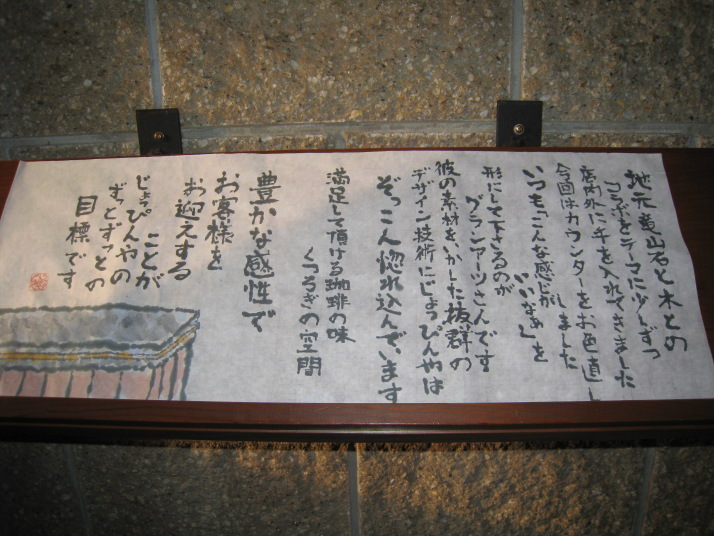 地元竜山石と木との
コラボをテーマに少しずつ
店内外に手を入れてきました
今回はカウンターをお色直し
しました
いつも「こんな感じが
いいなぁ」を
形にして下さるのが
グランアーツさんです
彼の素材をいかした抜群の
デザイン技術にじょっぴんやは
ぞっこん惚れ込んでいます
満足して頂ける珈琲の味
くつろぎの空間
豊かな感性で
お客様を
お迎えする
ことが
じょっぴんやの
ずっとずっとの
目標です